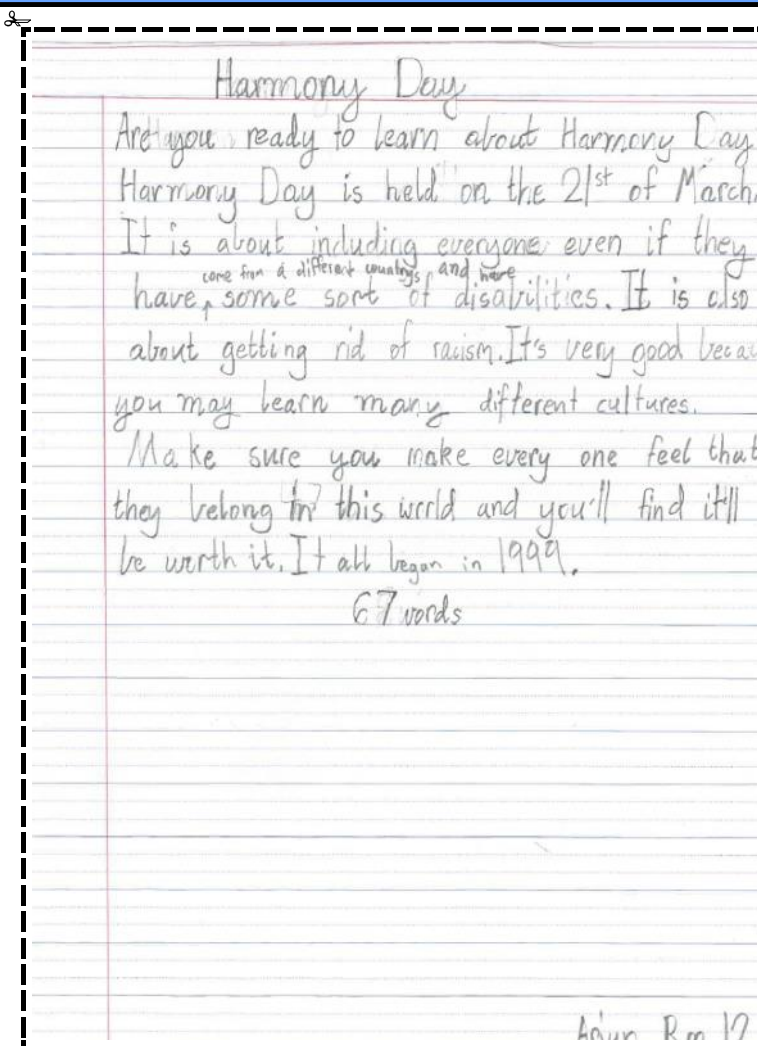 Harmony Day
Are you ready to learn about Harmony Day
Harmony Day is held on the 21st of March.
It is about including everyone even if they
come from a different countrys and have
have, some sort of disabilities. It is also
about getting rid of racism. It's very good becau
you may learn many different cultures.
Make sure you make every one feel that
they belong in this world and you'll find it'll
be worth it. It all began in 1999.
67 words
Rm 12